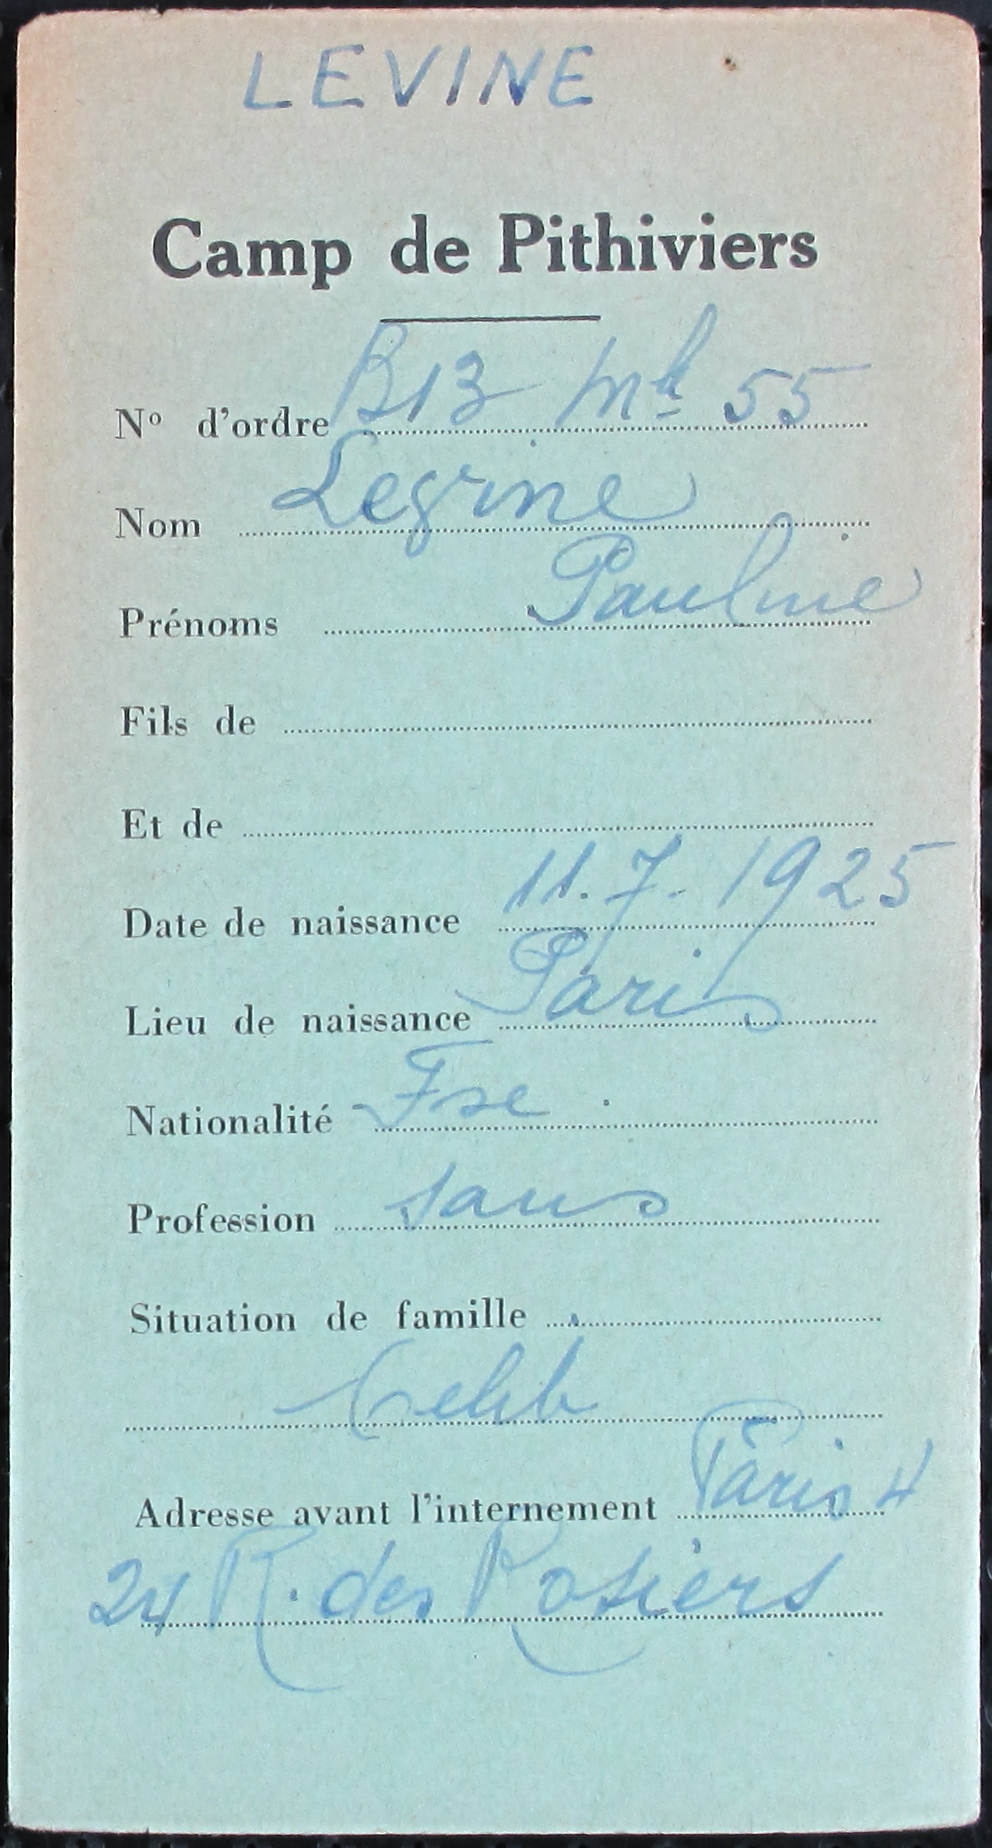 LEVINE
Camp de Pithiviers
No d'ordre B13 Mle 55
Nom Legrine
Prénoms Pauline
Fils de
Et de
Date de naissance 11.7.1925
Lieu de naissance Paris
Nationalité Fse
Profession sans
Situation de famille
Celib
Adresse avant l'internement Paris 4
24 R. des Rosiers